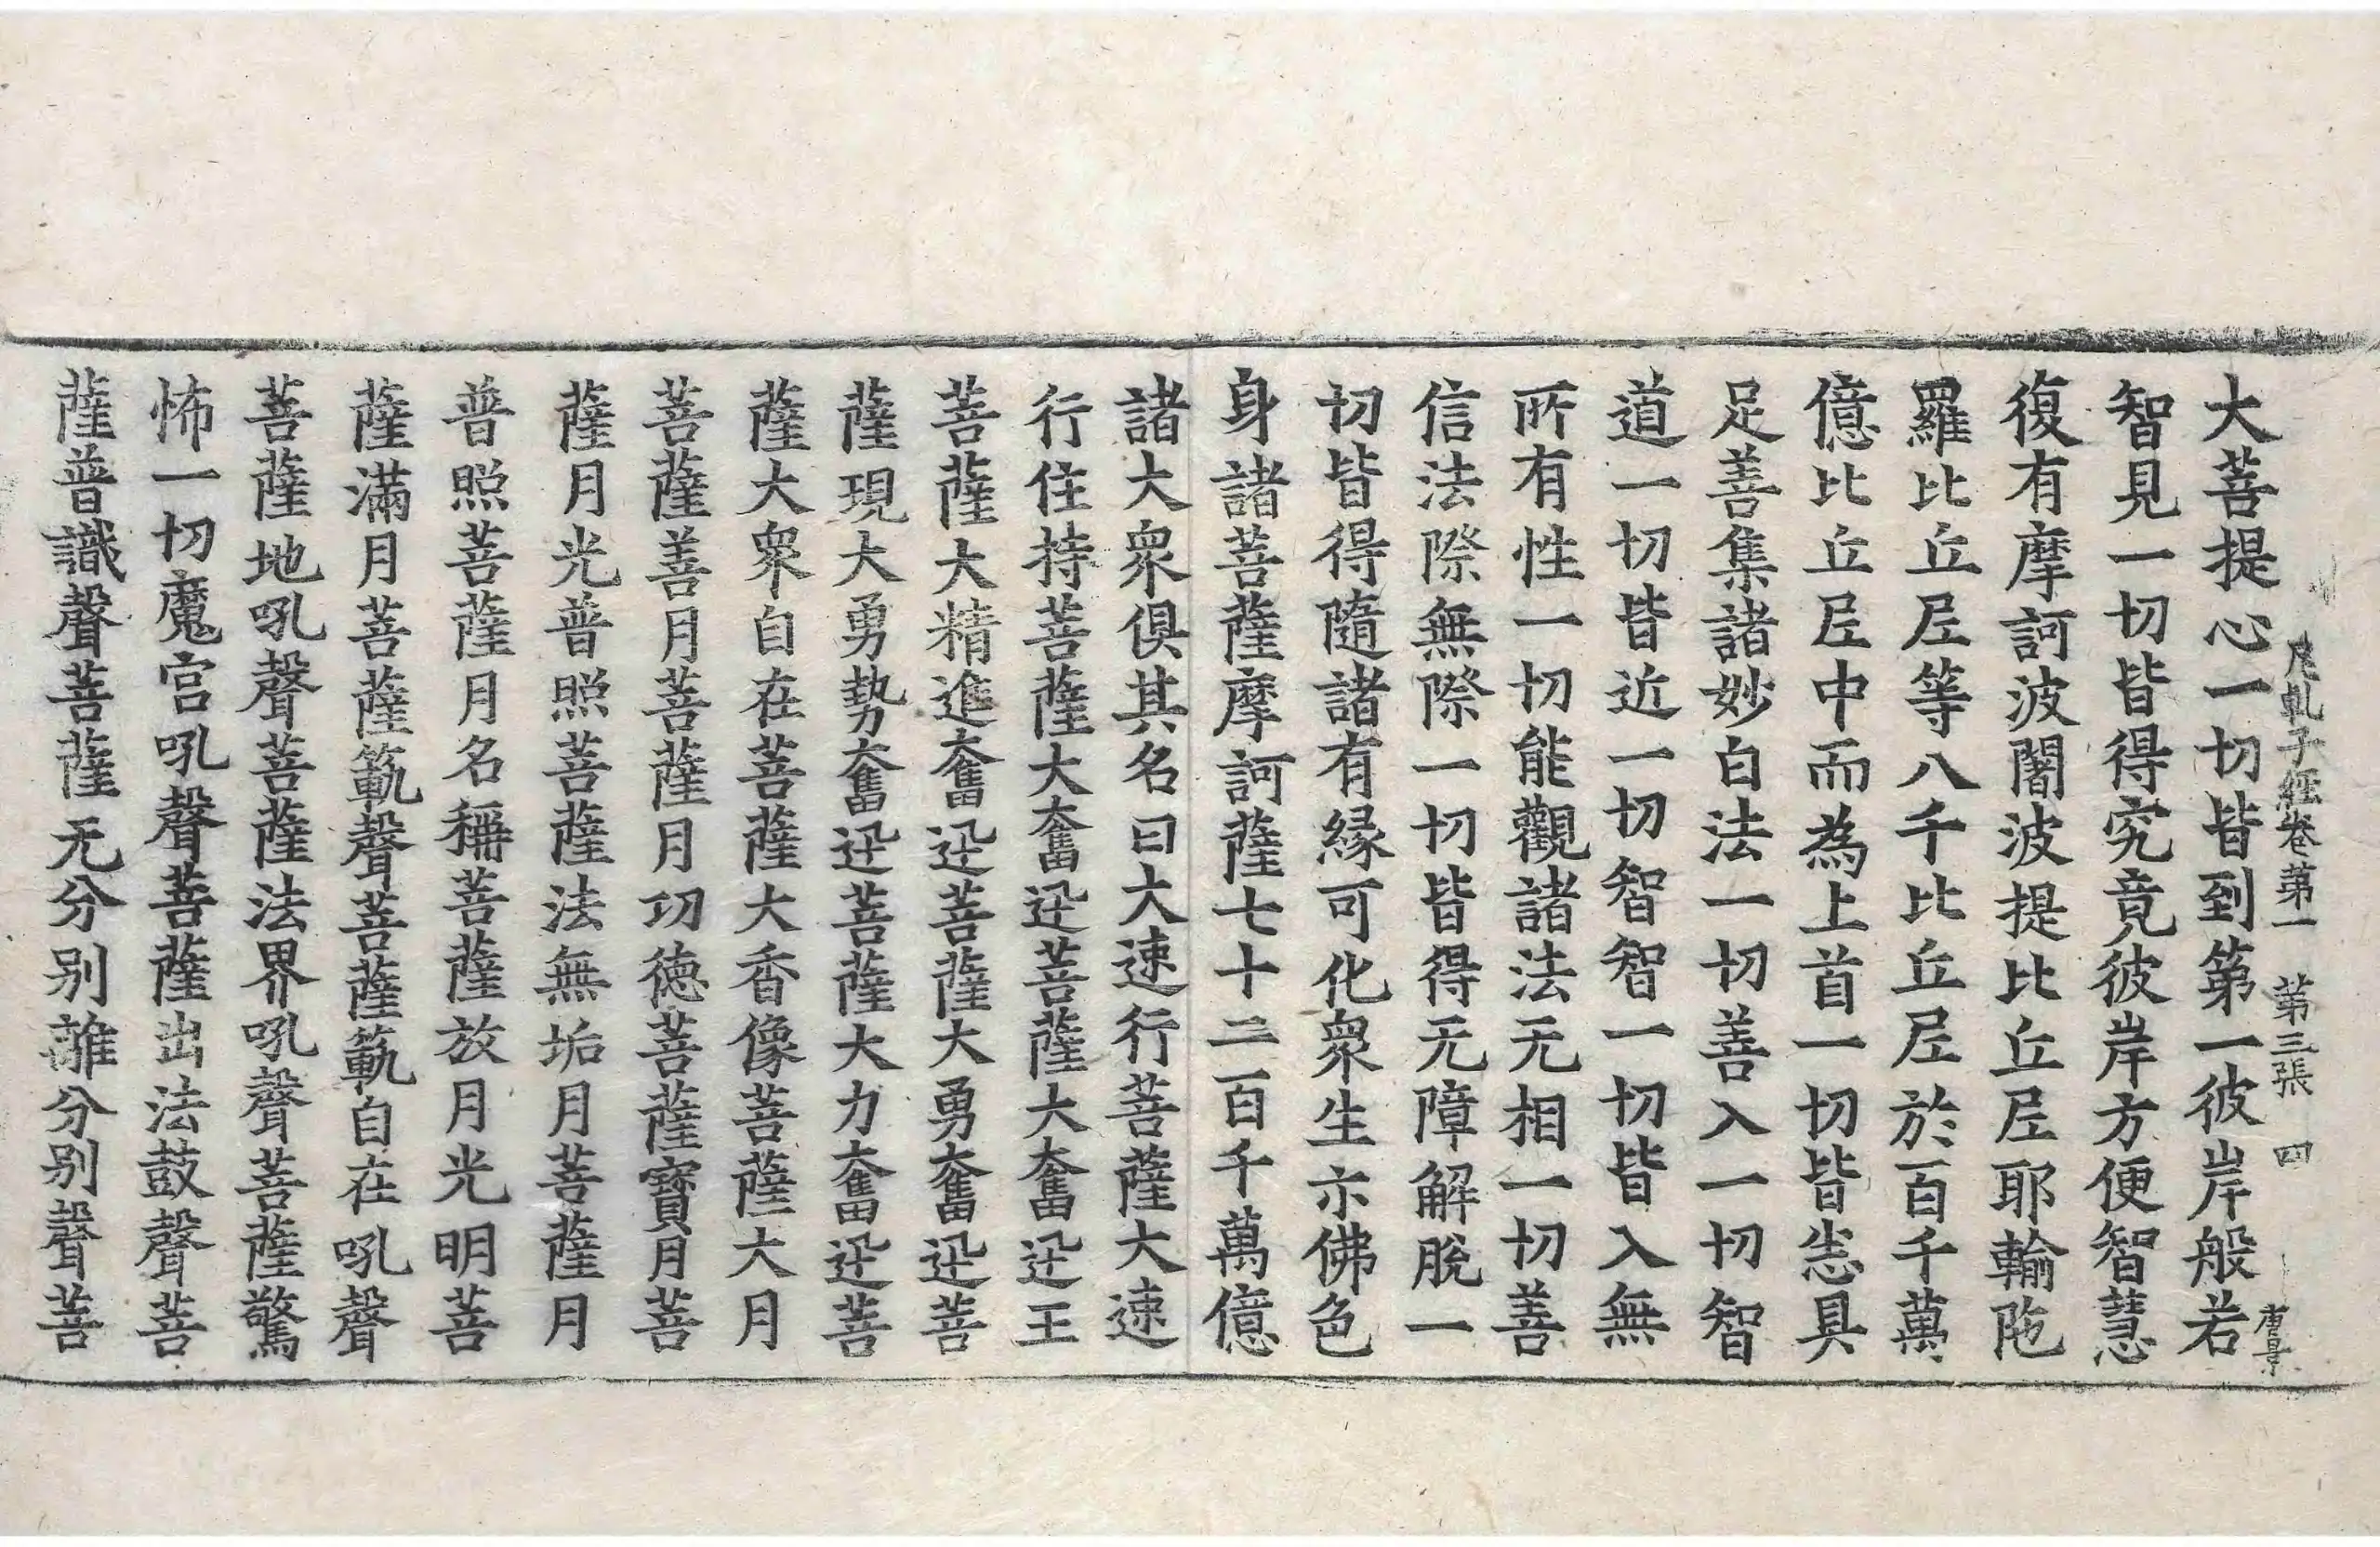 大菩提心一切皆到第一彼岸般若
尼乹子經卷第一　第三張　四
智見一切皆得究竟彼岸方便智慧
復有摩訶波闍波提比丘尼耶輸陁
羅比丘尼等八千比丘尼於百千萬
億比丘尼中而為上首一切皆悉具
足善集諸妙白法一切善入一切智
道一切皆近一切智智一切皆入無
所有性一切能觀諸法无相一切善
信法際無際一切皆得无障解脫一
切皆得隨諸有緣可化衆生示佛色
身諸菩薩摩訶薩七十二百千萬億
諸大衆俱其名曰大速行菩薩大速
行住持菩薩大奮迅菩薩大奮迅王
菩薩大精進奮迅菩薩大勇奮迅菩
薩現大勇勢奮迅菩薩大力奮迅菩
薩大衆自在菩薩大香像菩薩大月
菩薩善月菩薩月功德菩薩寶月菩
薩月光普照菩薩法無垢月菩薩月
普照菩薩月名稱菩薩放月光明菩
薩滿月菩薩範聲菩薩範自在吼聲
菩薩地吼聲菩薩法界吼聲菩薩驚
怖一切魔宮吼聲菩薩出法鼓聲菩
薩普識聲菩薩无分别離分别聲菩